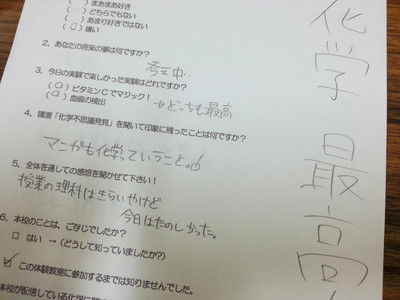 ( ) まあまあ好き
( ) どちらでもない
( ) あまり好きではない
(○) 嫌い
2. あなたの将来の夢は何ですか？
考え中…
3. 今日の実験で楽しかった実験はどれですか？
(○) ビタミンCでマジック！
(○) 血痕の検出
→どっちも最高
4. 講演「化学不思議発見」を聞いて印象に残ったことは何ですか？
マニがも化学っていうこと。
5. 全体を通しての感想を聞かせて下さい！
授業の理科はきらいやけど
今日はたのしかった。
6. 本校のことは、ご存じでしたか？
□ はい → (どうして知っていましたか?)
☑ この体験教室に参加するまでは知りませんでした。
本校が配信している化学に関
化学 最高